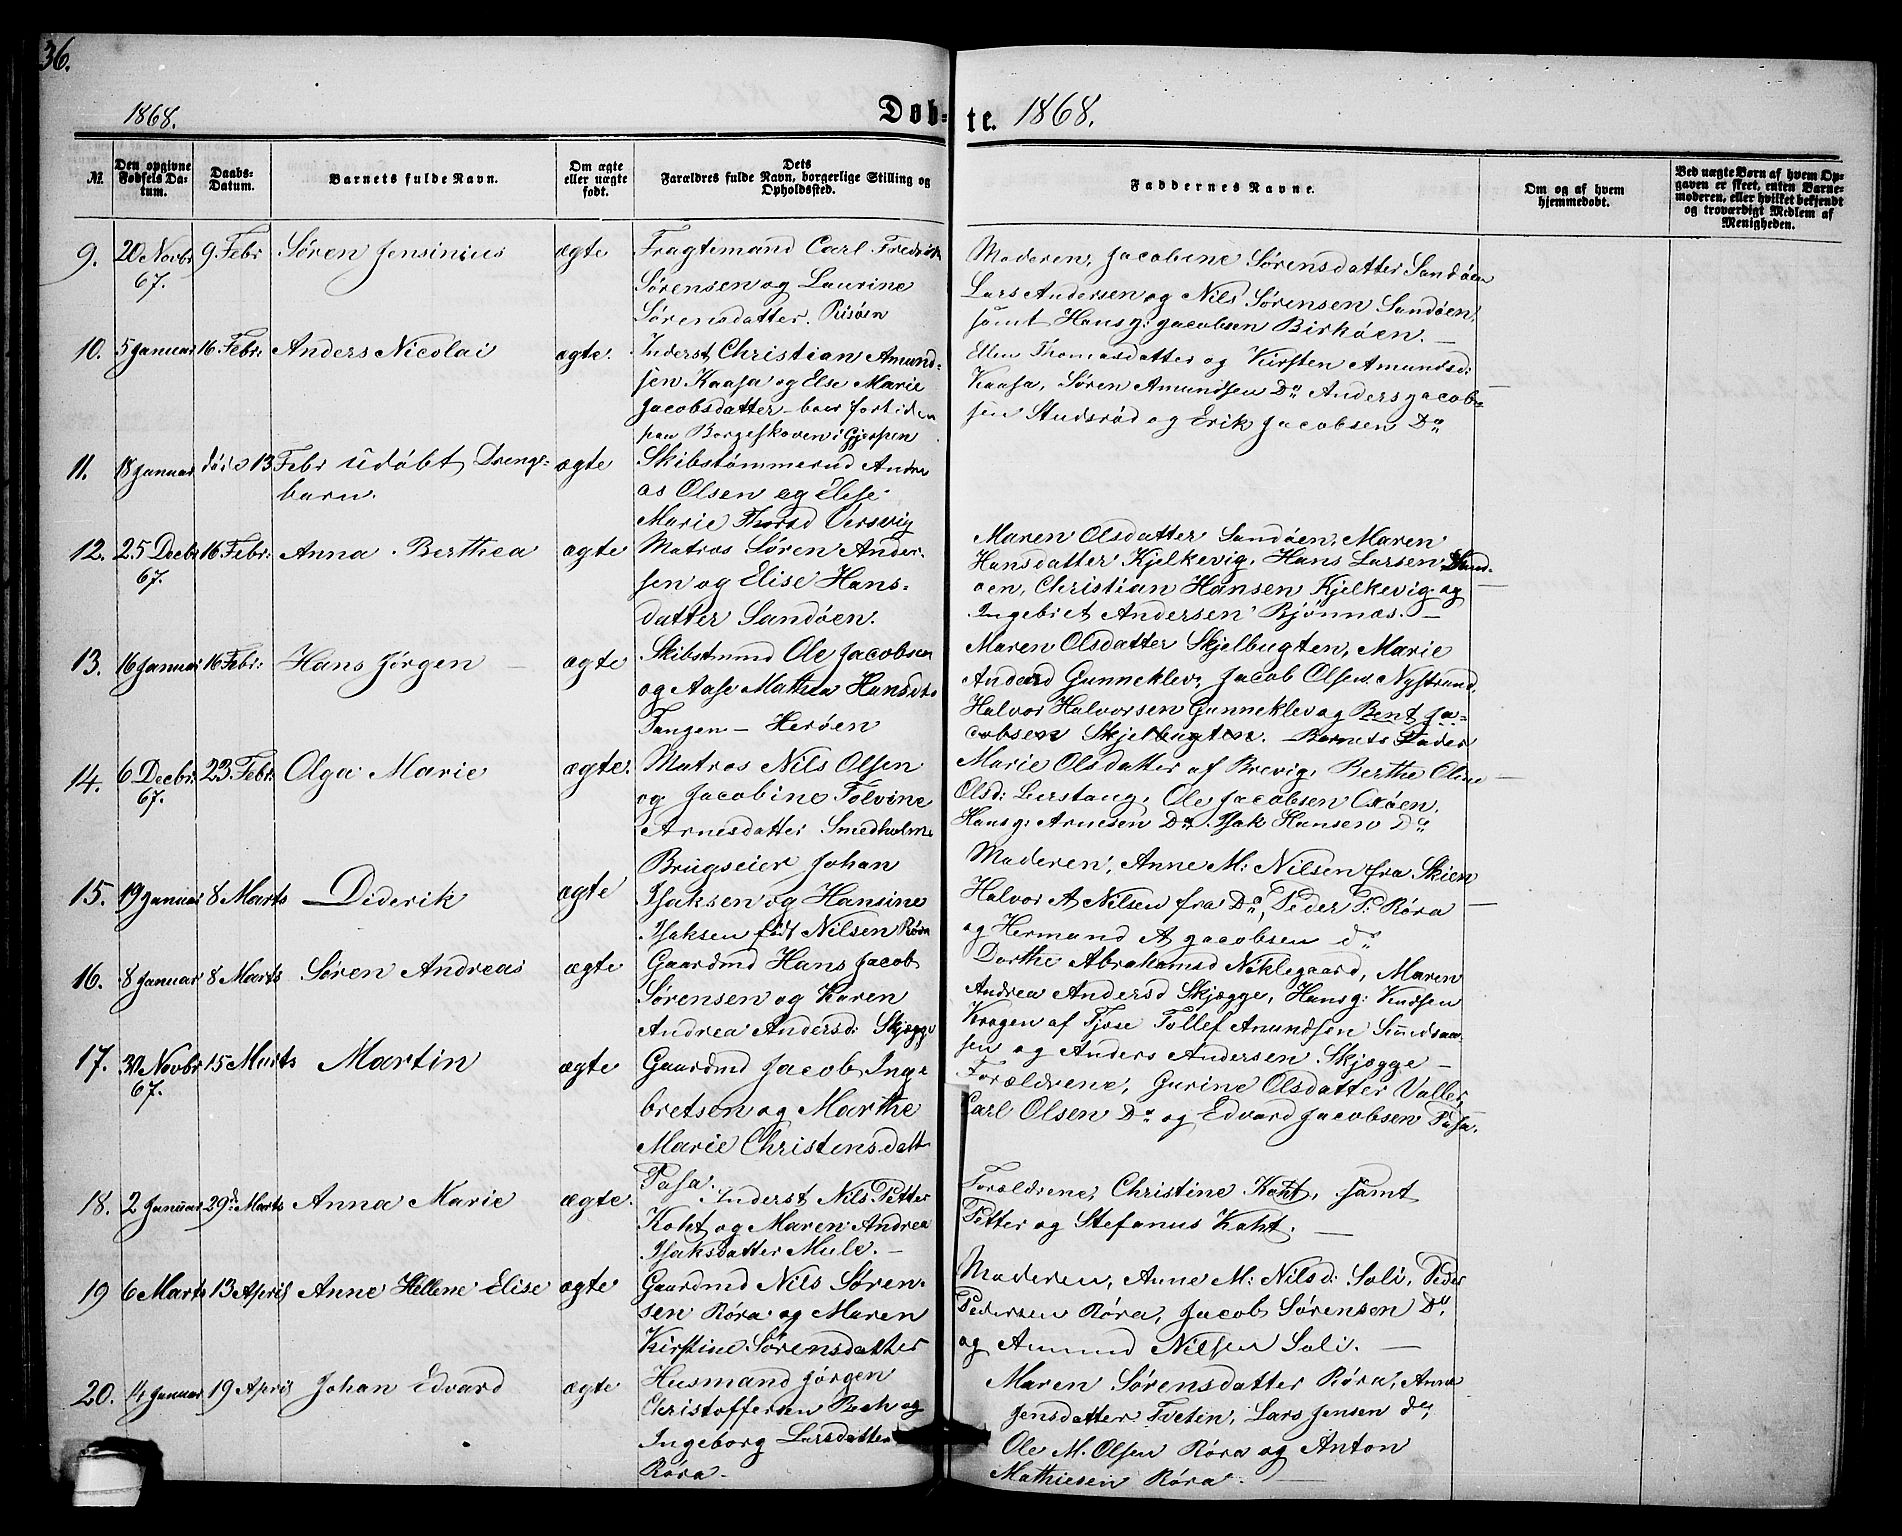 36.
1868.
Døb-
te.
1868.
№
Den opgivne
Fødsels Da-
tum.
Daabs-
Datum.
Barnets fulde Navn.
Om ægte
eller uægte
født.
Dets
Forældres fulde Navn, borgerlige Stilling og
Opholdssted.
Faddernes Navne.
Om og af hvem
hjemmedøbt.
Ved uægte Børn af hvem Op-
gaven er skeet, enten Barne-
moderen, eller hvilket bekjendt
og troværdigt Medlem af
Menigheden.
9.
20 Novbr
67.
9 Febr
Søren Jensinius
ægte
Fragtemand Carl Fredrik
Sørensen og Laurine
Sørensdatter. Risøen
Moderen, Jacobine Sørensdatter Sandøen
Lars Andersen og Nils Sørensen Sandøen,
samt Hans J: Jacobsen Birkøen. –
10.
5 Januar
16 Febr:
Anders Nicolai
ægte.
Inderst Christian Amund-
sen Kaasa og Else Marie
Jacobsdatter – boer fortiden
paa Borgeskoven i Gjerpen
Ellen Thomasdatter og Kirsten Amundsd:
Kaasa, Søren Amundsen Do Anders Jacob-
sen Studsrød og Erik Jacobsen Do
11.
18 Januar
død 13 Febr
udøbt Drenge-
barn.
ægte
Skibstømmermd Andre
as Olsen og Elise
Marie Thorsd Versvig
12.
25 Decbr
67.
16 Febr:
Anna Berthea
ægte
Matros Søren Ander-
sen og Elise Hans-
datter Sandøen.
Maren Olsdatter Sandøen, Maren
Hansdatter Kjelkevig, Hans Larsen Sand-
øen, Christian Hansen Kjelkevig og
Ingebret Andersen Bjønnes. –
13.
16 Januar
16 Febr:
Hans Jørgen –
ægte
Skibstmmd Ole Jacobsen
og Aase Mathea Hansdtr
Tangen – Herøen
Maren Olsdatter Skjelbugten, Marie
Andersd Gunneklev, Jacob Olsen Nystrand
Halvor Halvorsen Gunneklev og Bent Ja-
cobsen Skjelbugten. – Barnets Fader
14.
6 Decbr:
67.
23 Febr:
Olga Marie
ægte.
Matros Nils Olsen
og Jacobine Tolvine
Arnesdatter Smedholm
Marie Olsdatter af Brevig, Berthe Oline
Olsd: Lerstang, Ole Jacobsen Oxøen,
Hans J: Arnesen Do. Isak Hansen Do
15.
19 Januar
8 Marts
Diderik
ægte
Brugseier Johan
Isaksen og Hansine
Isaksen født Nilsen Røra
Moderen, Anne M: Nilsen fra Skien
Halvor A Nilsen fra Do, Peder P: Røra
og Hermand A Jacobsen do
16.
8 Januar
8 Marts
Søren Andreas
ægte
Gaardmd Hans Jacob
Sørensen og Karen
Andrea Andersd: Skjøgge
Dorthe Abrahamsd Niklegaard, Maren
Andrea Andersd Skjøgge, Hans J: Knudsen
Krogen af Tjøse Tollef Amundsen
sen og Anders Andersen Skjøgge –
17.
30 Novbr
67.
15 Marts
Martin
ægte
Gaardmd Jacob Inge
bretsen og Marthe
Marie Christensdatt
Pasa.
Forældrene, Gurine Olsdatter Valler,
Carl Olsen Do og Edvard Jacobsen Pasa.
18.
2 Januar
29de Marts
Anna Marie
ægte.
Inderst Nils Petter
Koht og Maren Andrea
Isaksdatter Mule. –
Forældrene, Christine Koht, samt
Petter og Stefanus Koht. –
19
6 Marts
13 April
Anne Hellene Elise
ægte
Gaardmd Nils Søren-
sen Røra og Maren
Kirstine Sørensdatter
Moderen, Anne M: Nilsd: Soli, Peder
Pedersen Røra, Jacob Sørensen Do,
og Amund Nilsen Soli. –
20.
14 Januar
19 April
Johan Edvard
ægte
Husmand Jørgen
Christoffersen Bech og
Ingeborg Larsdatter
Røra –
Maren Sørensdatter Røra, Anne
Jensdatter Tveten, Lars Jensen do,
Ole M. Olsen Røra og Anton
Mathiesen Røra. –